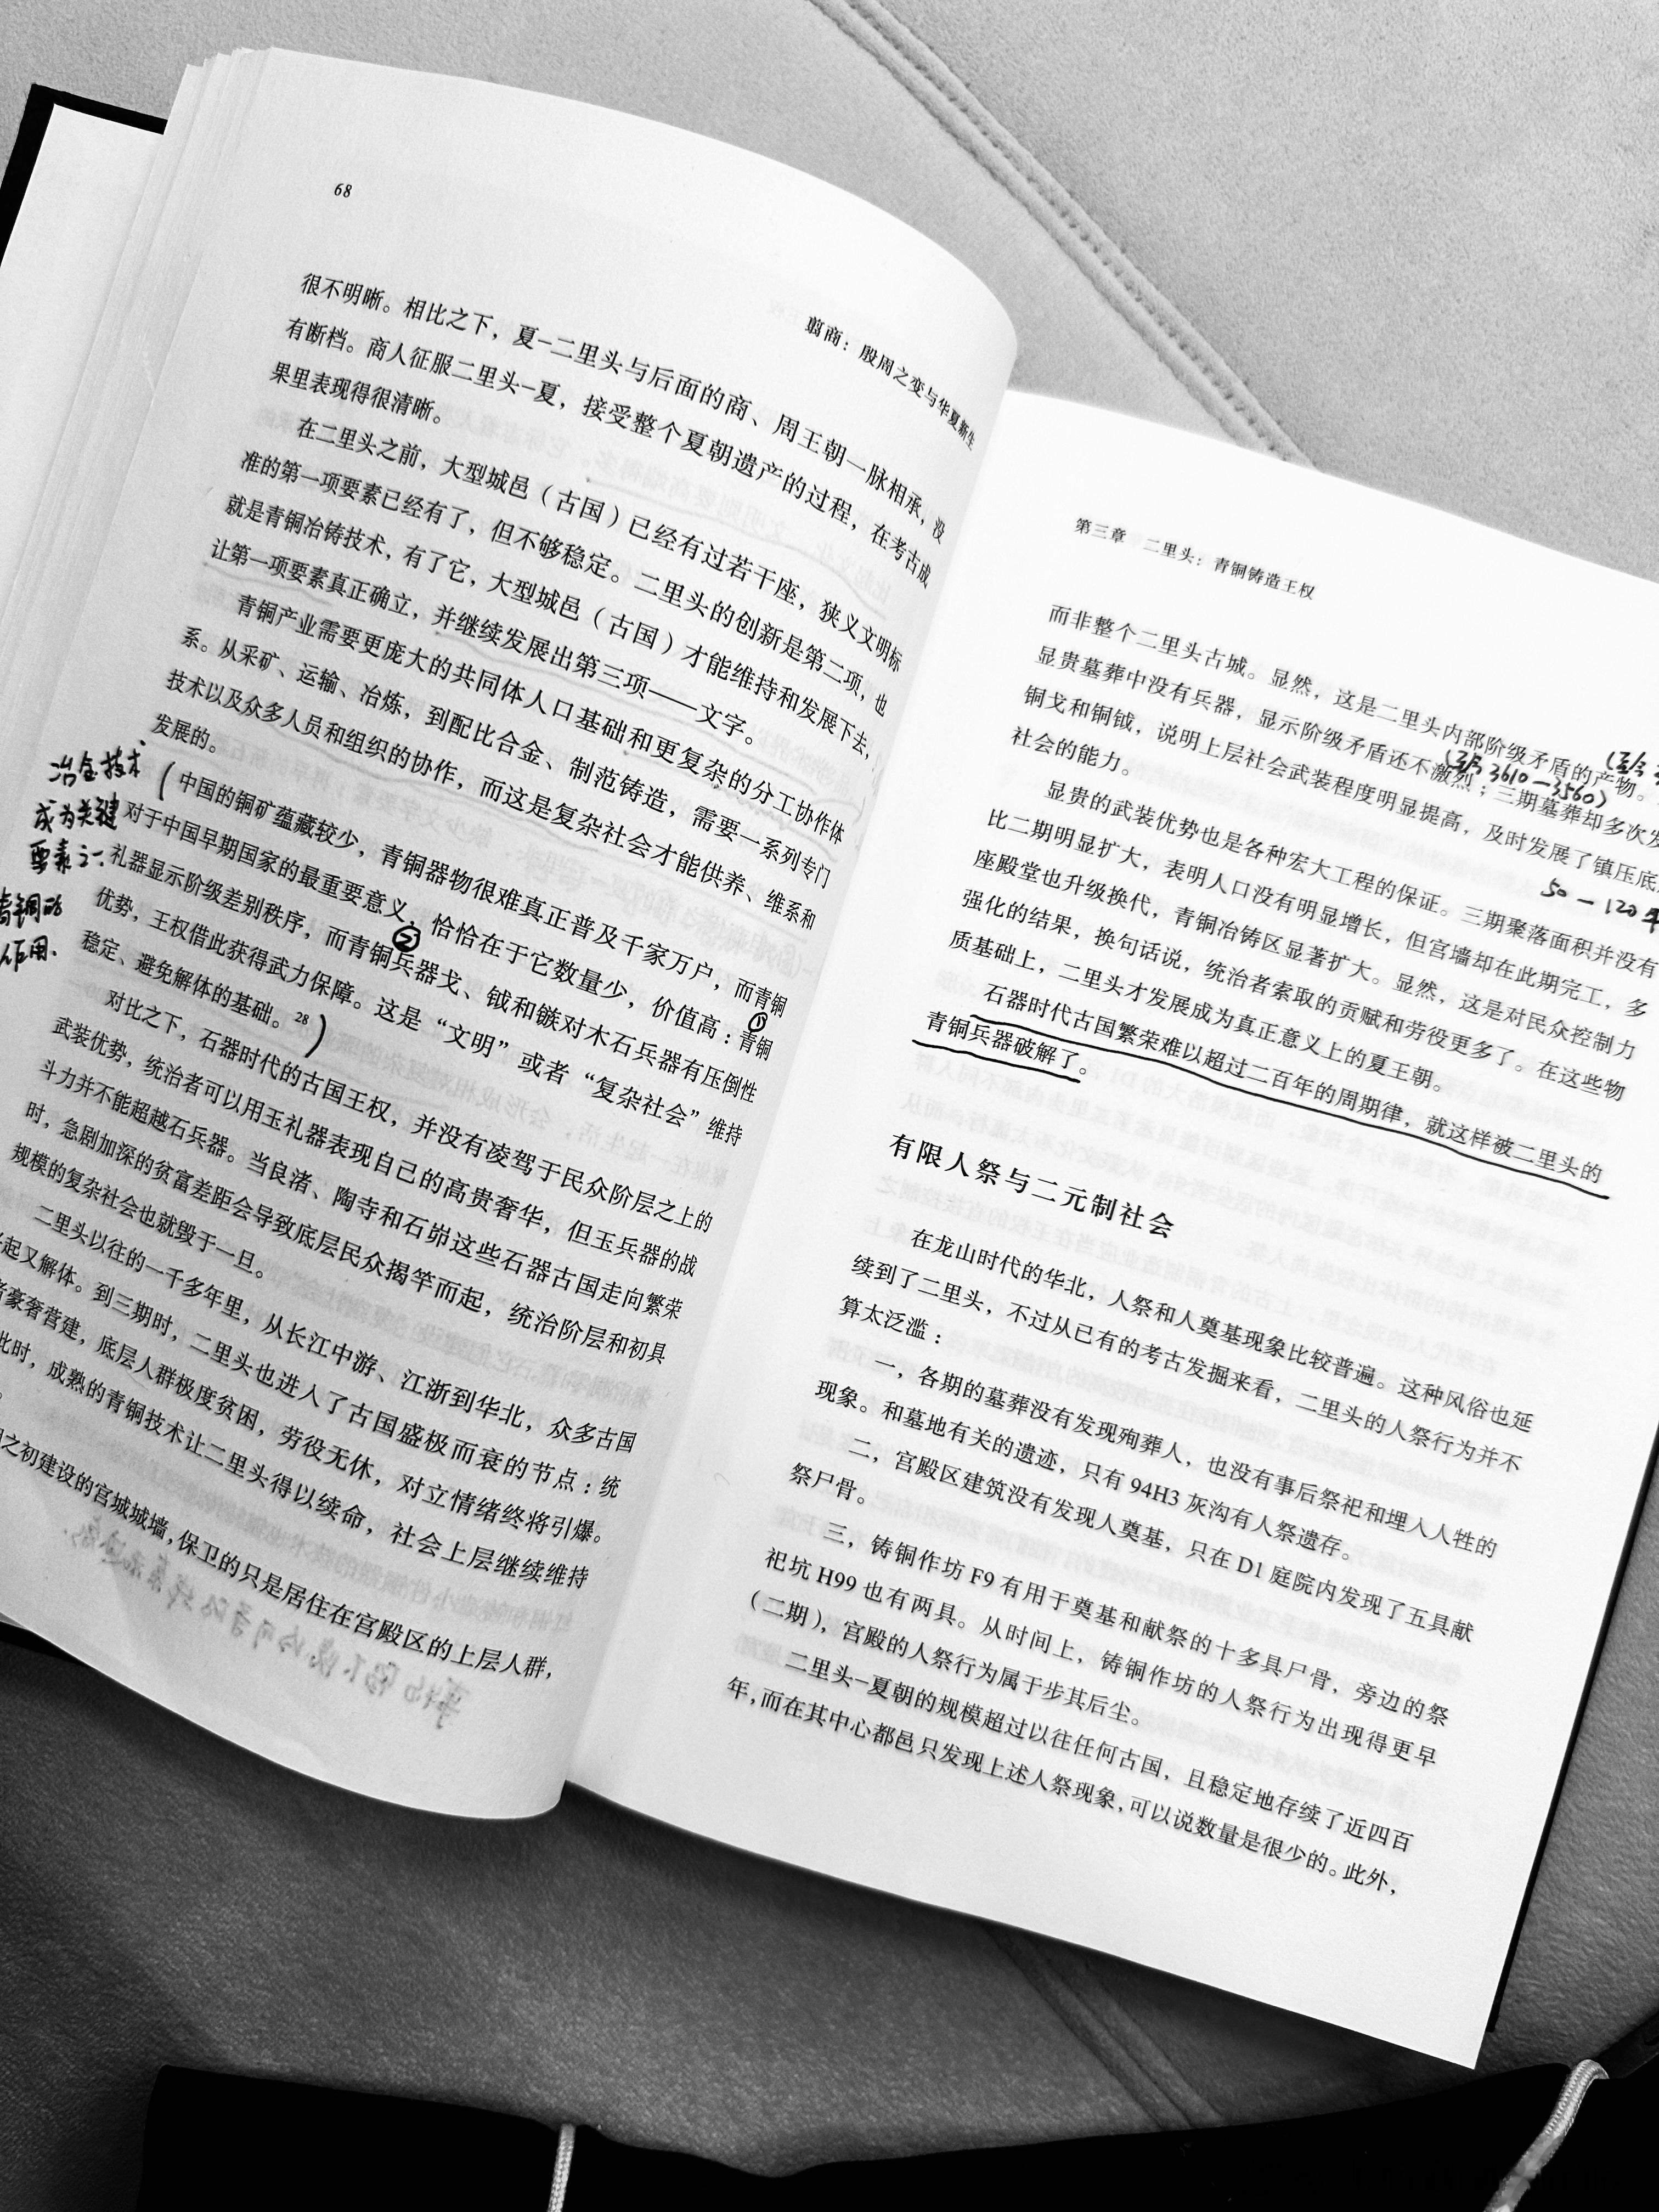 68
翦商：殷周之变与华夏新生
很不明晰。相比之下，夏-二里头与后面的商、周王朝一脉相承，没
有断档。商人征服二里头-夏，接受整个夏朝遗产的过程，在考古成
果里表现得很清晰。
在二里头之前，大型城邑（古国）已经有过若干座，狭义文明标
准的第一项要素已经有了，但不够稳定。二里头的创新是第二项，也
就是青铜冶铸技术，有了它，大型城邑（古国）才能维持和发展下去，
让第一项要素真正确立，并继续发展出第三项——文字。
青铜产业需要更庞大的共同体人口基础和更复杂的分工协作体
系。从采矿、运输、冶炼，到配比合金、制范铸造，需要一系列专门
技术以及众多人员和组织的协作，而这是复杂社会才能供养、维系和
发展的。
中国的铜矿蕴藏较少，青铜器物很难真正普及千家万户，而青铜
对于中国早期国家的最重要意义，恰恰在于它数量少，价值高：青铜
礼器显示阶级差别秩序，而青铜兵器戈、钺和镞对木石兵器有压倒性
优势，王权借此获得武力保障。这是“文明”或者“复杂社会”维持
稳定、避免解体的基础。28
对比之下，石器时代的古国王权，并没有凌驾于民众阶层之上的
武装优势，统治者可以用玉礼器表现自己的高贵奢华，但玉兵器的战
斗力并不能超越石兵器。当良渚、陶寺和石峁这些石器古国走向繁荣
时，急剧加深的贫富差距会导致底层民众揭竿而起，统治阶层和初具
规模的复杂社会也就毁于一旦。
二里头以往的一千多年里，从长江中游、江浙到华北，众多古国
起又解体。到三期时，二里头也进入了古国盛极而衰的节点：统
者豪奢营建，底层人群极度贫困，劳役无休，对立情绪终将引爆。
此时，成熟的青铜技术让二里头得以续命，社会上层继续维持
之初建设的宫城城墙，保卫的只是居住在宫殿区的上层人群，
冶金技术
成为关键
要素之一.
青铜的
作用.
①
②
第三章 二里头：青铜铸造王权
而非整个二里头古城。显然，这是二里头内部阶级矛盾的产物。
显贵墓葬中没有兵器，显示阶级矛盾还不激烈；三期墓葬却多次发
铜戈和铜钺，说明上层社会武装程度明显提高，及时发展了镇压底
社会的能力。
显贵的武装优势也是各种宏大工程的保证。三期聚落面积并没有
比二期明显扩大，表明人口没有明显增长，但宫墙却在此期完工，多
座殿堂也升级换代，青铜冶铸区显著扩大。显然，这是对民众控制力
强化的结果，换句话说，统治者索取的贡赋和劳役更多了。在这些物
质基础上，二里头才发展成为真正意义上的夏王朝。
石器时代古国繁荣难以超过二百年的周期律，就这样被二里头的
青铜兵器破解了。
有限人祭与二元制社会
在龙山时代的华北，人祭和人奠基现象比较普遍。这种风俗也延
续到了二里头，不过从已有的考古发掘来看，二里头的人祭行为并不
算太泛滥：
一，各期的墓葬没有发现殉葬人，也没有事后祭祀和埋入人牲的
现象。和墓地有关的遗迹，只有 94H3 灰沟有人祭遗存。
二，宫殿区建筑没有发现人奠基，只在 D1 庭院内发现了五具献
祭尸骨。
三，铸铜作坊 F9 有用于奠基和献祭的十多具尸骨，旁边的祭
祀坑 H99 也有两具。从时间上，铸铜作坊的人祭行为出现得更早
（二期），宫殿的人祭行为属于步其后尘。
二里头-夏朝的规模超过以往任何古国，且稳定地存续了近四百
年，而在其中心都邑只发现上述人祭现象，可以说数量是很少的。此外，
(距今3610—3560)
50—120